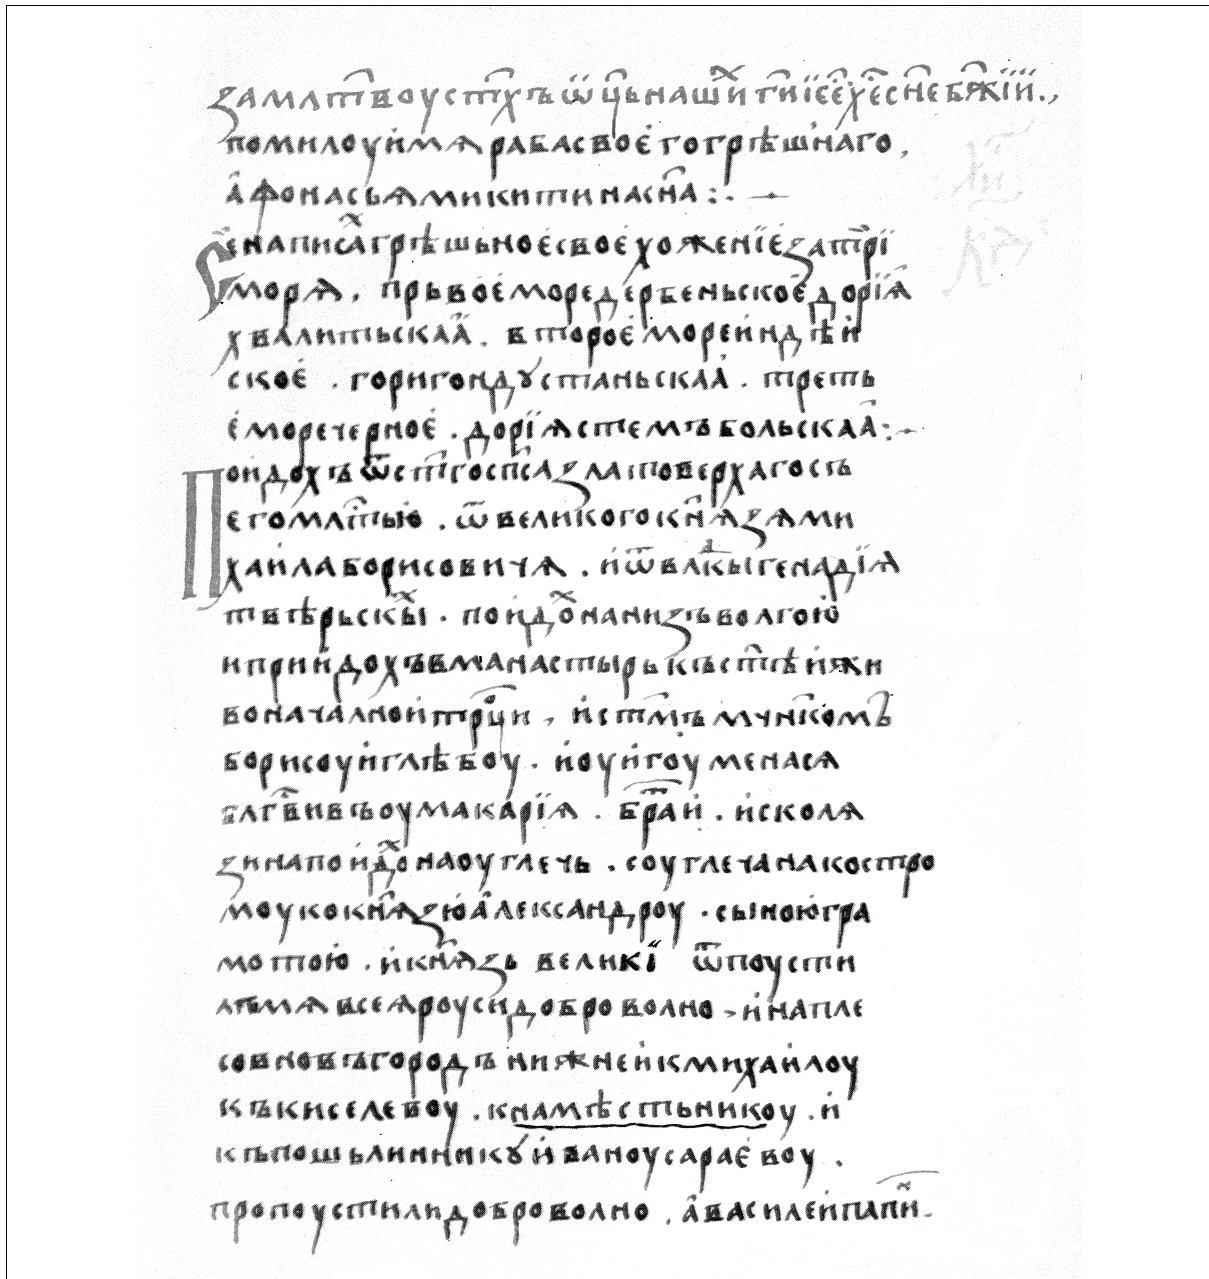 За млт҃воу ст҃хъ ѿц҃ь нашиⷯ ги҃ їс҃е х҃е сн҃е бж҃їи.,
помилоуи мѧ раба своего грѣшнаго,
афонасьѧ микитина сн҃а :·
Се написаⷯ грѣшьное свое хоженїе за трї
морѧ, прьвое море дербеньское дорїѧ
хвалитьскаа. второе море индѣи
ское. гори гондꙋстаньскаа. треть
е море черное. дорїѧ стемъбольскаа :·
Поидохъ ѿ ст҃го сп҃са златоверхаго съ
его млт҃ью. ѿ великого кн҃ѧзѧ ми
хаила борисовичѧ. и ѿ влⷣкы генадїѧ
твѣрьскыⷯ. поидоⷯ на низъ волгою
и приидохъ в манастырь къ ст҃ѣи жи
воначалнои трⷪци, и ст҃мъ мчн҃комъ
борисоу и глѣбоу. и оу игоумена сѧ
блг҃вивъ оу макарїѧ. братⷭ҇и. и с колѧ
зина поидоⷯ на оуглечь. с оуглеча на костро
моу ко кн҃ѧзю александроу. с ыною гра
мотою. и кн҃ѧзь великїи ѿпоусти
лъ мѧ всеѧ роуси доброволно. и на пле
со в новъгородъ нижнеи к михаилоу
къ киселевоу. к намѣстьникоу. и
къ пошьлинникꙋ иваноу сараевоу.
пропоустили доброволно. а василеи папиⷩ.